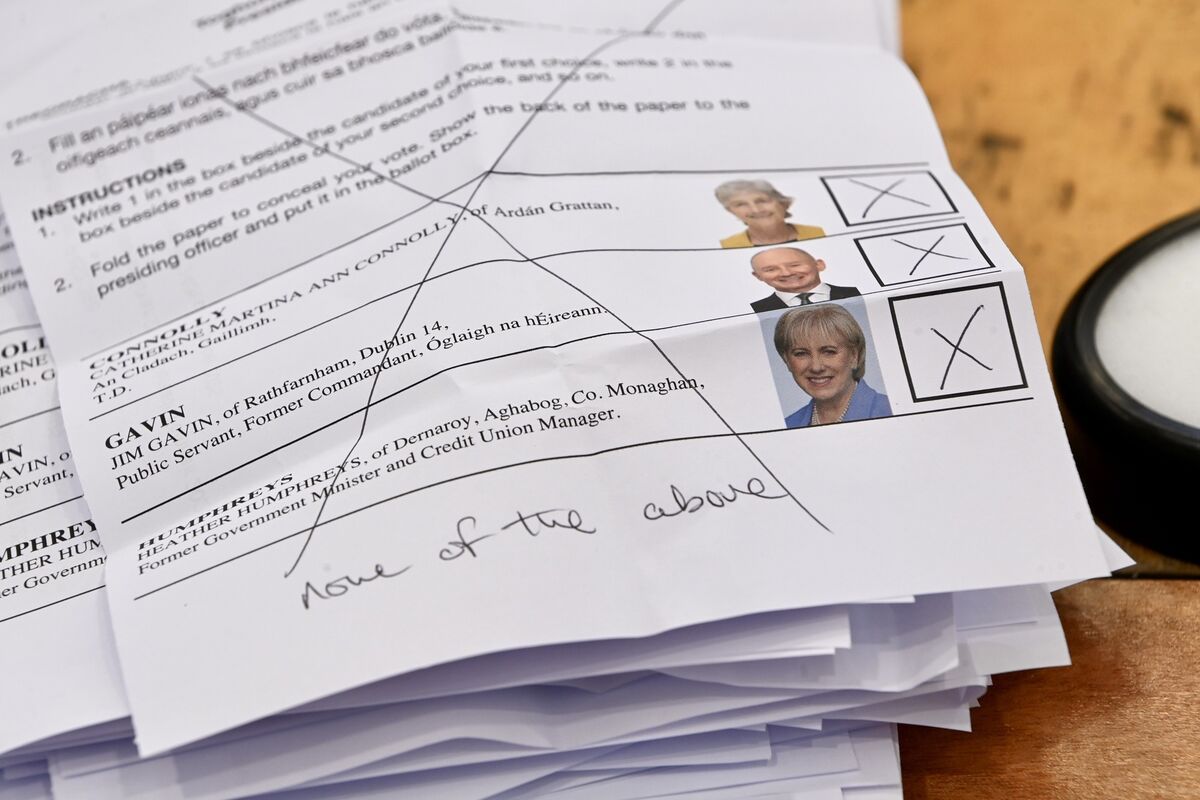 2. Fill an páipéar ionas nach bhfeicfear do vóta.
oifigeach ceannais, agus cuir sa bhosca ballóide é.
INSTRUCTIONS
1. Write 1 in the box beside the candidate of your first choice, write 2 in the
box beside the candidate of your second choice, and so on.
2. Fold the paper to conceal your vote. Show the back of the paper to the
presiding officer and put it in the ballot box.
CONNOLLY
CATHERINE MARTINA ANN CONNOLLY, of Ardán Grattan,
An Cladach, Gaillimh.
T.D.
GAVIN
JIM GAVIN, of Rathfarnham, Dublin 14,
Public Servant, Former Commandant, Óglaigh na hÉireann.
HUMPHREYS
HEATHER HUMPHREYS, of Dernaroy, Aghabog, Co. Monaghan,
Former Government Minister and Credit Union Manager.
none of the above